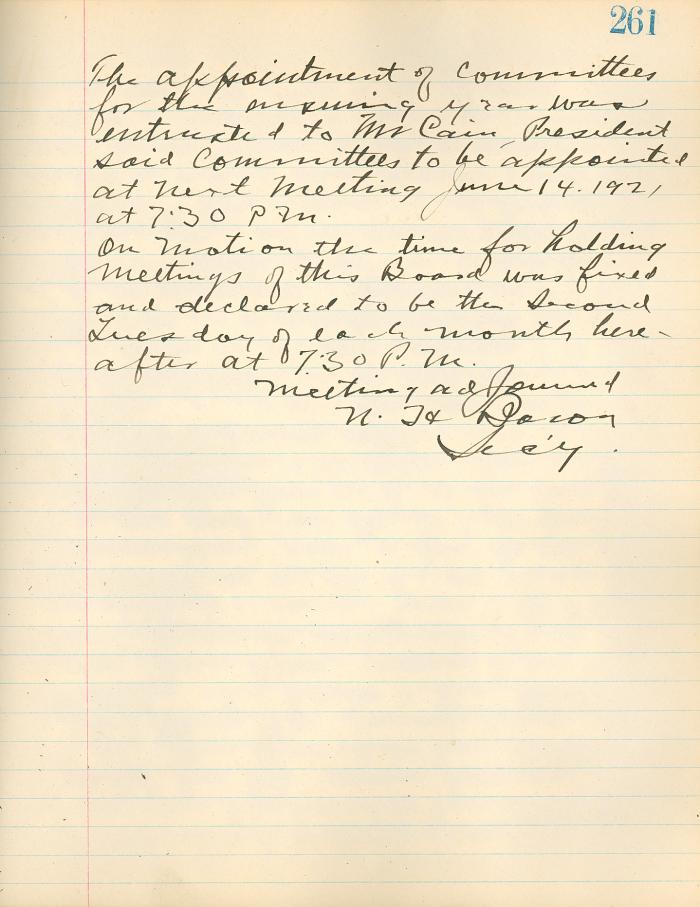 261
The appointment of Committees
for the ensuing year was
entrusted to Mr Cain, President
said Committees to be appointed
at next Meeting June 14. 1921
at 7:30 P M.
On Motion the time for holding
Meetings of this Board was fixed
and declared to be the Second
Tuesday of each month here-
after at 7:30 P. M.
Meeting adjourned
N. H Bacon
Sec'y.